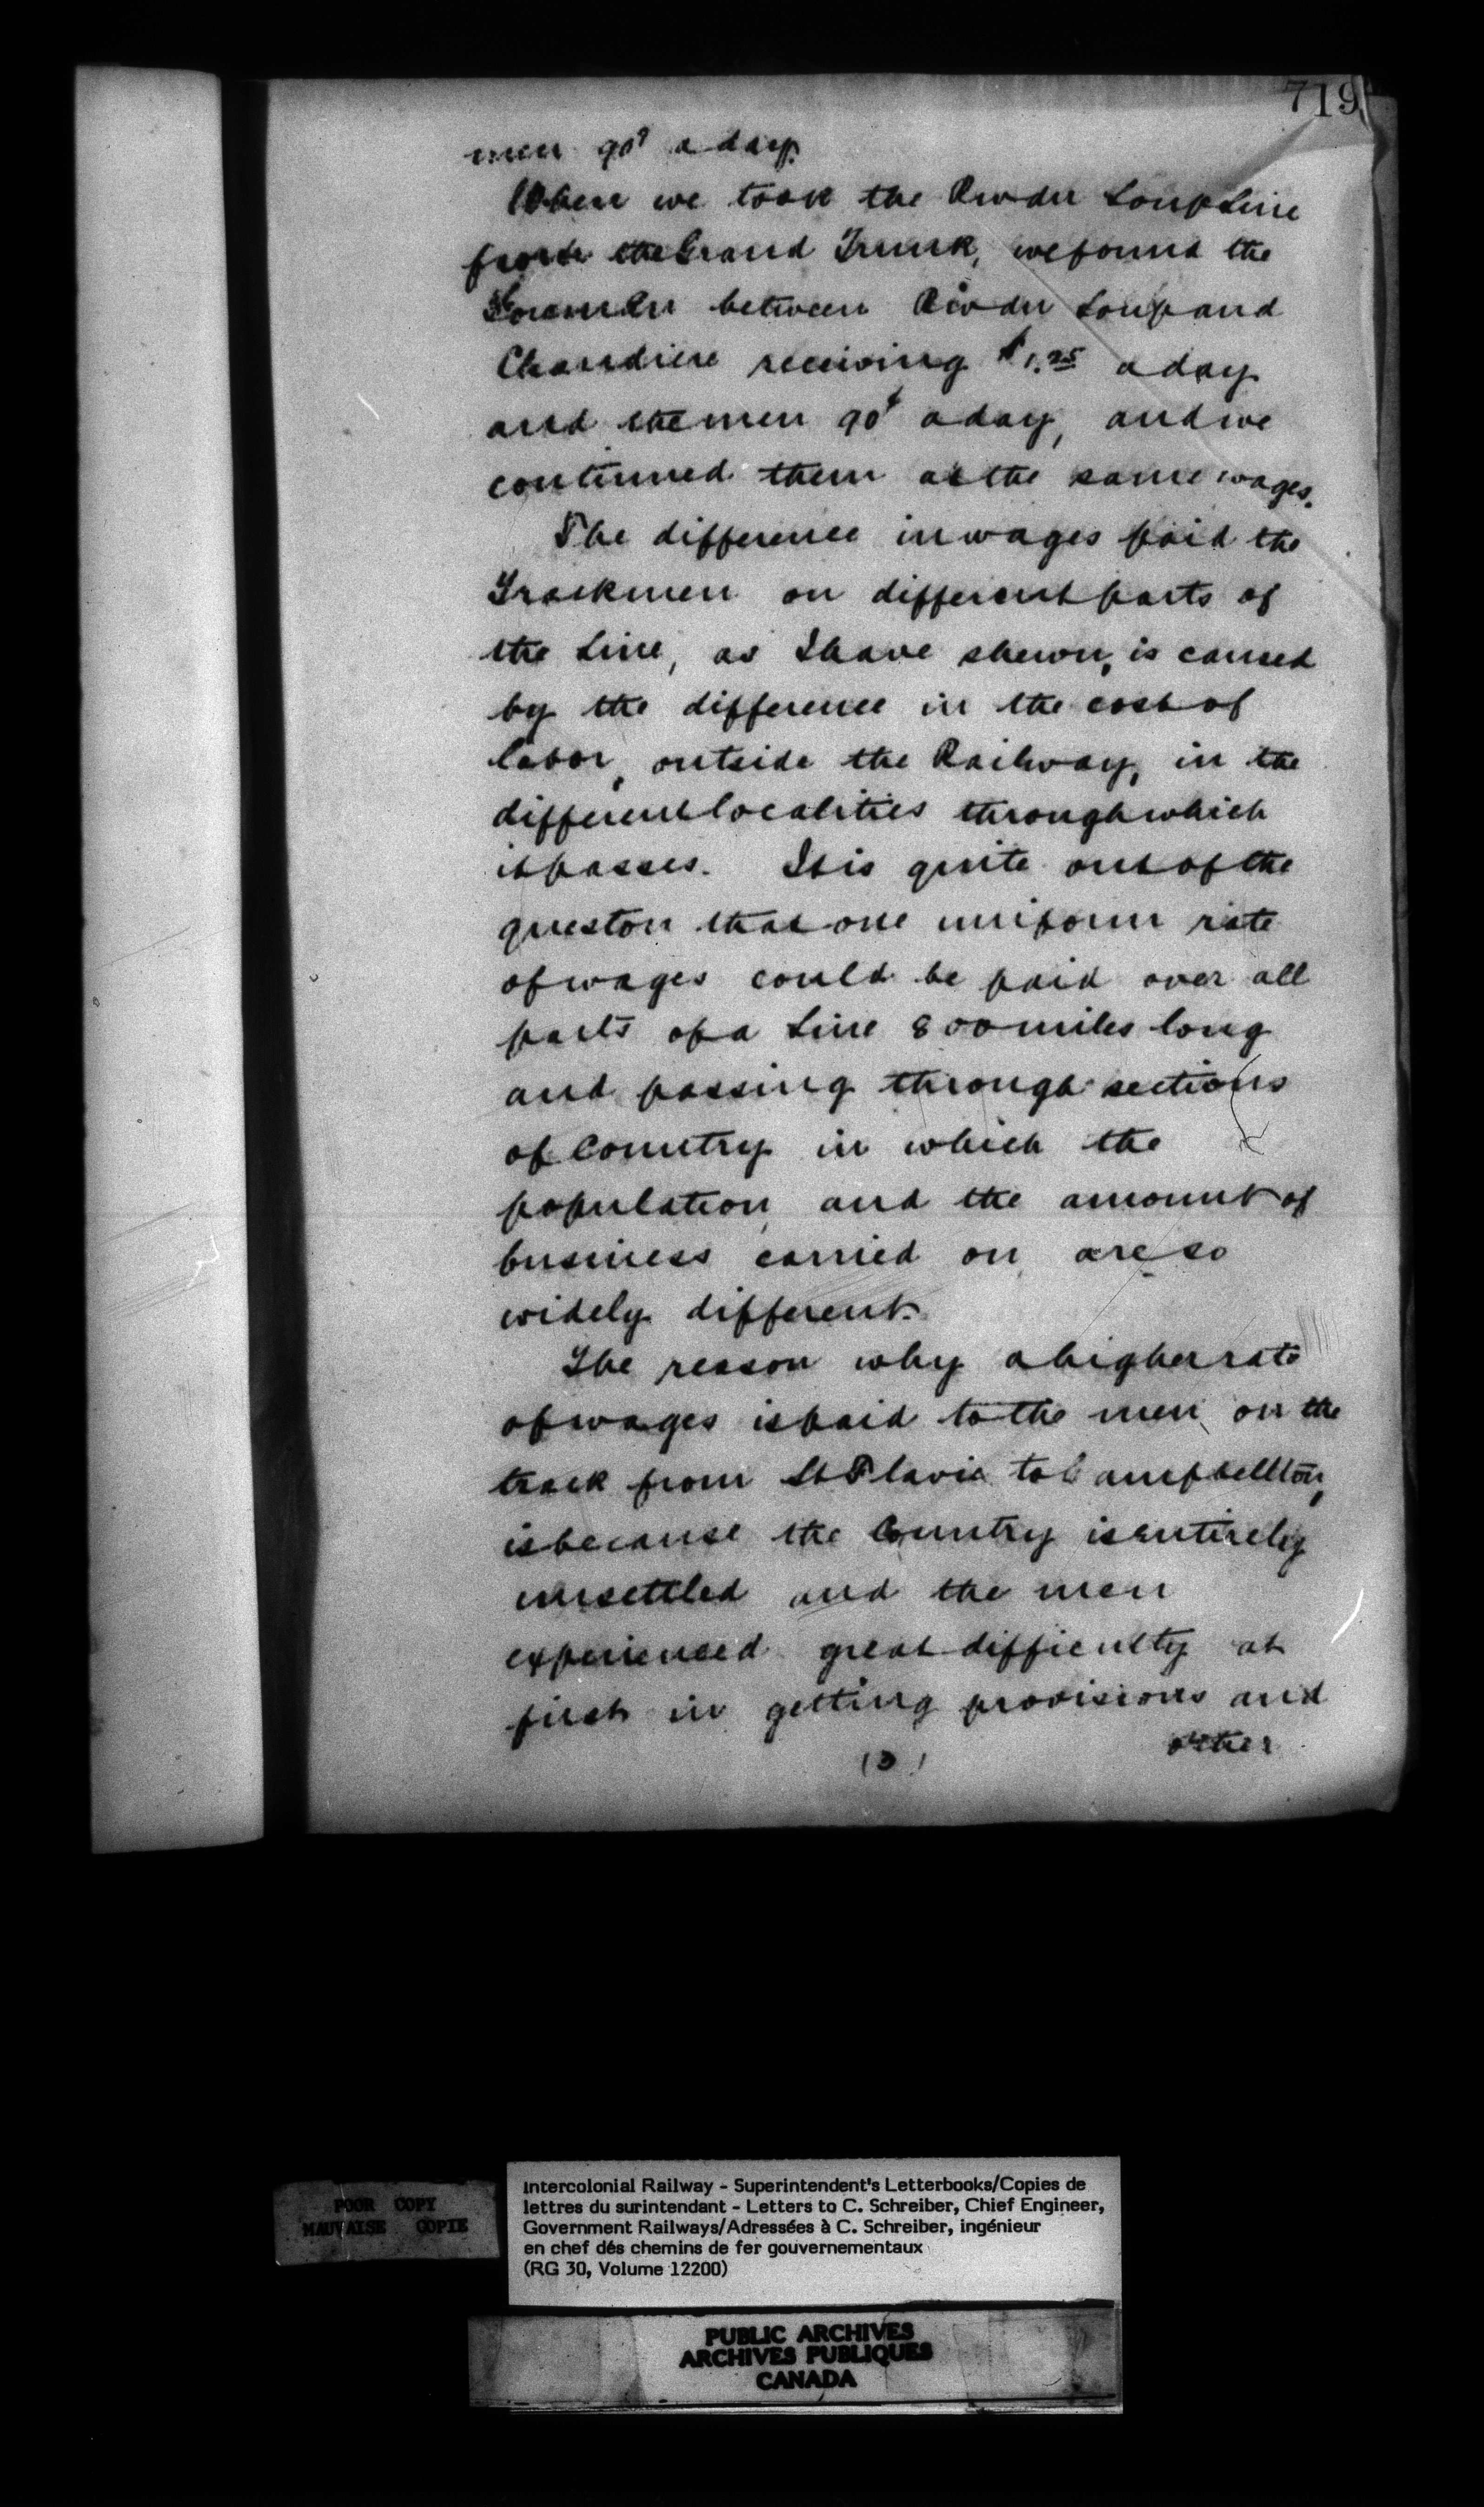 719
men 90¢ a day.
When we took the Riv du Loup Line
from the Grand Trunk, we found the
Foremen between Riv du Loup and
Chaudiere receiving $1.25 a day
and the men 90¢ a day, and we
continued them at the same wages.
The difference in wages paid the
Trackmen on different parts of
the Line, as I have shewn, is caused
by the difference in the cost of
labor, outside the Railway, in the
different localities through which
it passes. It is quite out of the
queston that one uniform rate
of wages could be paid over all
parts of a Line 800 miles long
and passing through sections
of Country in which the
population and the amount of
business carried on are so
widely different.
The reason why a higher rate
of wages is paid to the men on the
track from St Flavie to Campbellton,
is because the Country is entirely
unsettled and the men
experienced great difficulty at
first in getting provisions and
other
(3)
POOR COPY
MAUVAISE COPIE
Intercolonial Railway - Superintendent's Letterbooks/Copies de
lettres du surintendant - Letters to C. Schreiber, Chief Engineer,
Government Railways/Adressées à C. Schreiber, ingénieur
en chef dés chemins de fer gouvernementaux
(RG 30, Volume 12200)
PUBLIC ARCHIVES
ARCHIVES PUBLIQUES
CANADA